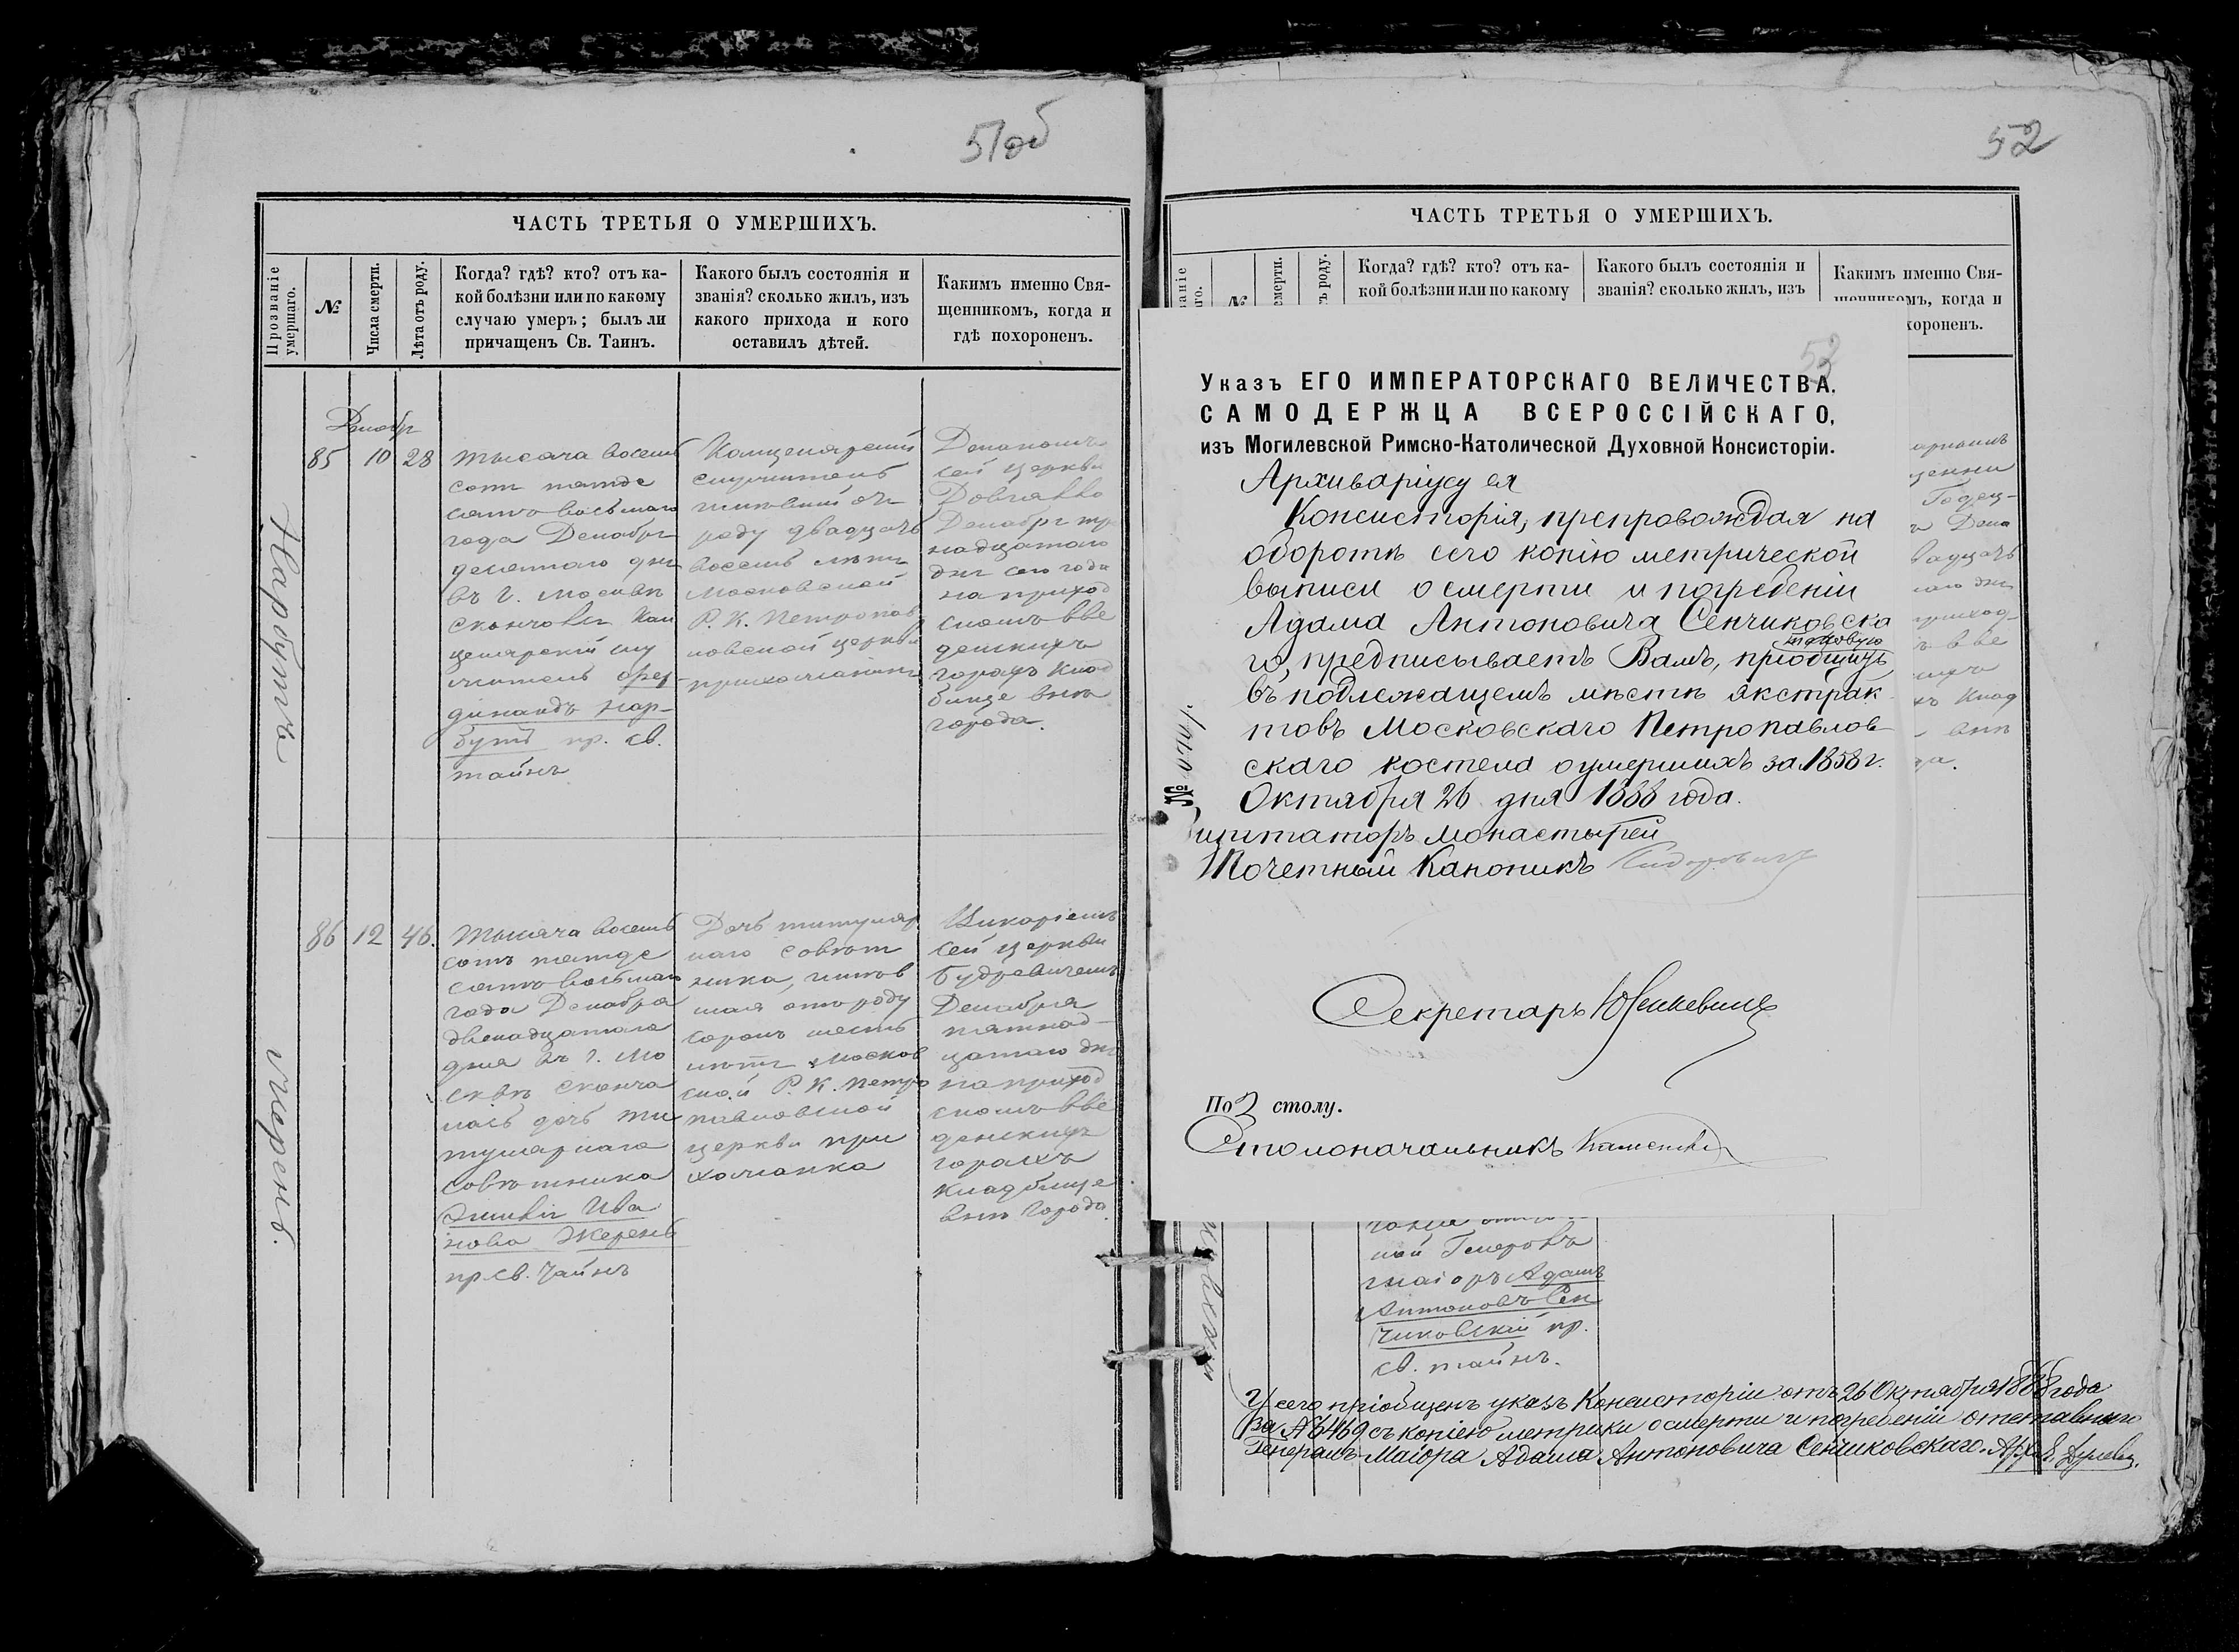 51об
ЧАСТЬ ТРЕТЬЯ О УМЕРШИХЪ.
Прозваніе умершаго.
№
Числа смерти.
Лѣта отъ роду.
Когда? гдѣ? кто? отъ ка-
кой болѣзни или по какому
случаю умеръ; былъ ли
причащенъ Св. Таинъ.
Какого былъ состоянія и
званія? сколько жилъ, изъ
какого прихода и кого
оставилъ дѣтей.
Какимъ именно Свя-
щенникомъ, когда и
гдѣ похороненъ.
Нарбутъ
Декабр
85 10 28
тысяча восемь
сотъ пятьде
сятъ восьмаго
года Декабря
десятаго дня
въ г. Москвѣ
скончался Кан
целярскій слу
житель Фер-
динандъ Нар-
бутъ пр. св.
тайнъ
Канцелярскій
служитель
жившій отъ
роду двадцать
восемь лѣтъ
Московской
Р. К. Петропав
ловской церкви
прихожанинъ
Деканомъ
сей церкви
Довгялло
Декабря три
надцатаго
дня сего года
на приход
скомъ Вве
денскихъ
горахъ клад
бищѣ внѣ
города.
Жеренъ.
86 12 46.
Тысяча восемь
сотъ пятьде
сятъ восьмаго
года Декабря
двѣнадцатаго
дня въ г. Мо
сквѣ сконча
лась дочь ти
тулярнаго
совѣтника
Эмилія Ива
нова Жеренъ
пр. св. Тайнъ
Дочь титуляр
наго совѣт
ника, жив
шая отъ роду
сорокъ шесть
лѣтъ Москов
ской Р. К. Петро
павловской
церкви при
хожанка
Викаріемъ
сей церкви
Будревичемъ
Декабря
пятнад-
цатаго дня
на приход
скомъ Вве
денскихъ
горахъ
кладбище
внѣ города.
52
ЧАСТЬ ТРЕТЬЯ О УМЕРШИХЪ.
№
Когда? гдѣ? кто? отъ ка-
кой болѣзни или по какому
Какого былъ состоянія и
званія? сколько жилъ, изъ
Какимъ именно Свя-
щенникомъ, когда и
хороненъ.
53
Указъ ЕГО ИМПЕРАТОРСКАГО ВЕЛИЧЕСТВА,
САМОДЕРЖЦА ВСЕРОССІЙСКАГО,
изъ Могилевской Римско-Католической Духовной Консисторіи.
Архиваріусу ея
Консисторія, препровождая на
оборотѣ сего копію метрической
выписи о смерти и погребеніи
Адама Антоновича Сенчиковска
го, предписываетъ Вамъ, таковую пріобщить
въ подлежащемъ мѣстѣ экстрак-
товъ Московскаго Петропавлов-
скаго костела о умершихъ за 1858 г.
Октября 26 дня 1888 года.
Визитаторъ монастырей
Почетный Каноникъ
Секретарь Юшкевичъ
По 3 столу.
Столоначальникъ
ной Генералъ
маіоръ Адамъ
Антоновъ Сен
чиковскій пр.
св. тайнъ.
У сего пріобщенъ указъ Консисторіи отъ 26 Октября 1888 года
за № 6469 съ копіею метрики о смерти и погребеніи отставнаго
Генералъ-Маіора Адама Антоновича Сенчиковскаго.